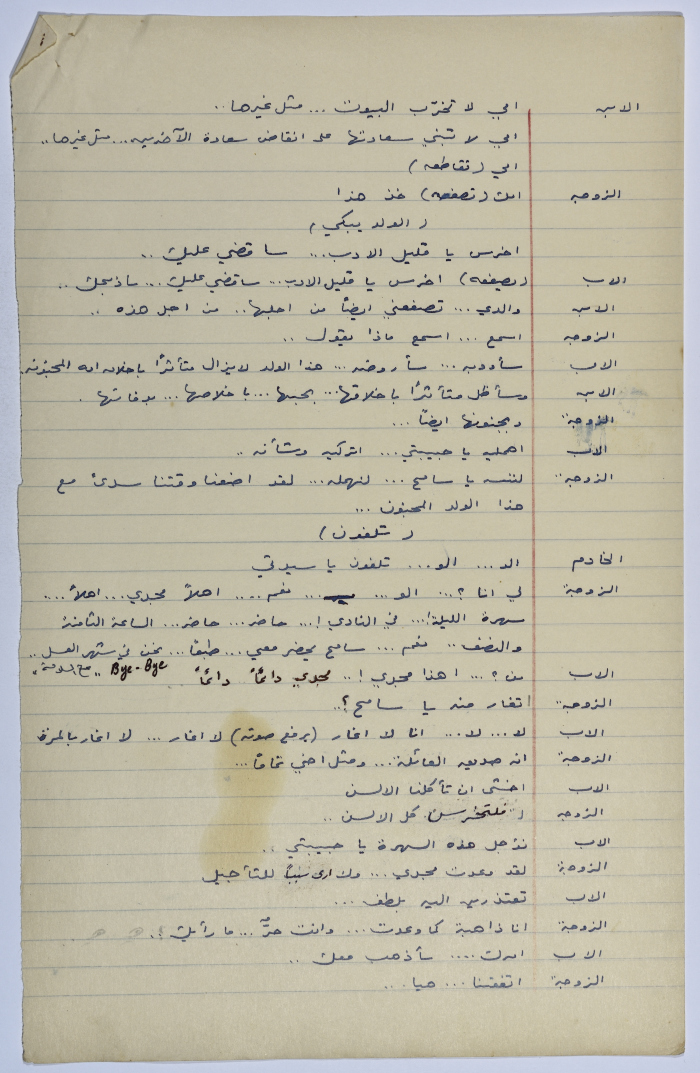 الابن امي لا تخرّب البيوت ... مثل غيرها ..
امي لا تبني سعادتها على انقاض سعادة الآخرين ... مثل غيرها ..
امي (تقاطعه)
الزوجة امك (تصفعه) خذ هذا
(الولد يبكي)
اخرس يا قليل الادب ... سأقضي عليك ..
الاب (يصفعه) اخرس يا قليل الادب .. سأقضي عليك ... سأذبحك ..
الابن والدي ... تصفعني ايضاً من اجلها .. من اجل هذه ..
الزوجة اسمع ... اسمع ماذا يقول ..
الاب سأؤدبه ... سأروضه ... هذا الولد لا يزال متأثراً باخلاق امه المجنونة
الابن وسأظل متأثراً باخلاقها ... بحبها ... باخلاصها ... بوفائها .
الزوجة وبجنونها ايضاً ...
الاب اهمليه يا حبيبتي ... اتركيه وشأنه ..
الزوجة لننسه يا سامح ... لنهمله ... لقد اضعنا وقتنا سدىً مع
هذا الولد المجنون ...
(تلفون)
الخادم الو ... الو ... تلفون يا سيدتي
الزوجة لي انا ؟ ... الو ... نعم .... اهلاً مجدي ... اهلاً ....
سهرة الليلة ! ... في النادي ! ... حاضر ... حاضر ... الساعة الثامنة
والنصف .. نعم ... سامح يحضر معي ... طبعاً ... نحن في شهر العسل ..
Bye-Bye .. مع السلامة ..
الاب من ؟ ... اهذا مجدي ! .. مجدي دائماً دائماً
الزوجة اتغار منه يا سامح ؟ ..
الاب لا ... لا ... انا لا اغار (يرفع صوته) لا اغار ... لا اغار بالمرة
الزوجة انه صديق العائلة ... ومثل اخي تماماً ...
الاب اخشى ان تأكلنا الالسن
الزوجة فلتخرس كل الالسن ..
الاب نؤجل هذه السهرة يا حبيبتي ..
الزوجة لقد وعدت مجدي ... ولا ارى سبباً للتأجيل
الاب تعتذرين اليه بلطف ...
الزوجة انا ذاهبة كما وعدت ... وانت حرٌّ ... ما رأيك ؟ .
الاب امرك .... سأذهب معك ..
الزوجة اتفقنا ... هيا ...